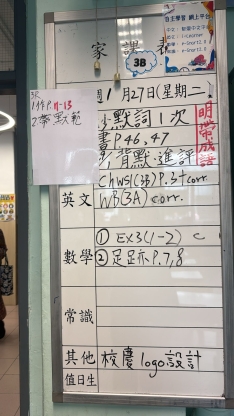 家課表
3B
自主學習 網上平台
週1月27日(星期二
默詞1次
P.46,47
背默.進評
明帶成語
3R
P.11-13
2.帶 默範
英文
Ch WS1(3B) P.3+corr.
WB(3A) corr.
數學
① EX3(1-2) C
② 足跡 P.7,8
常識
其他
校慶logo設計
值日生